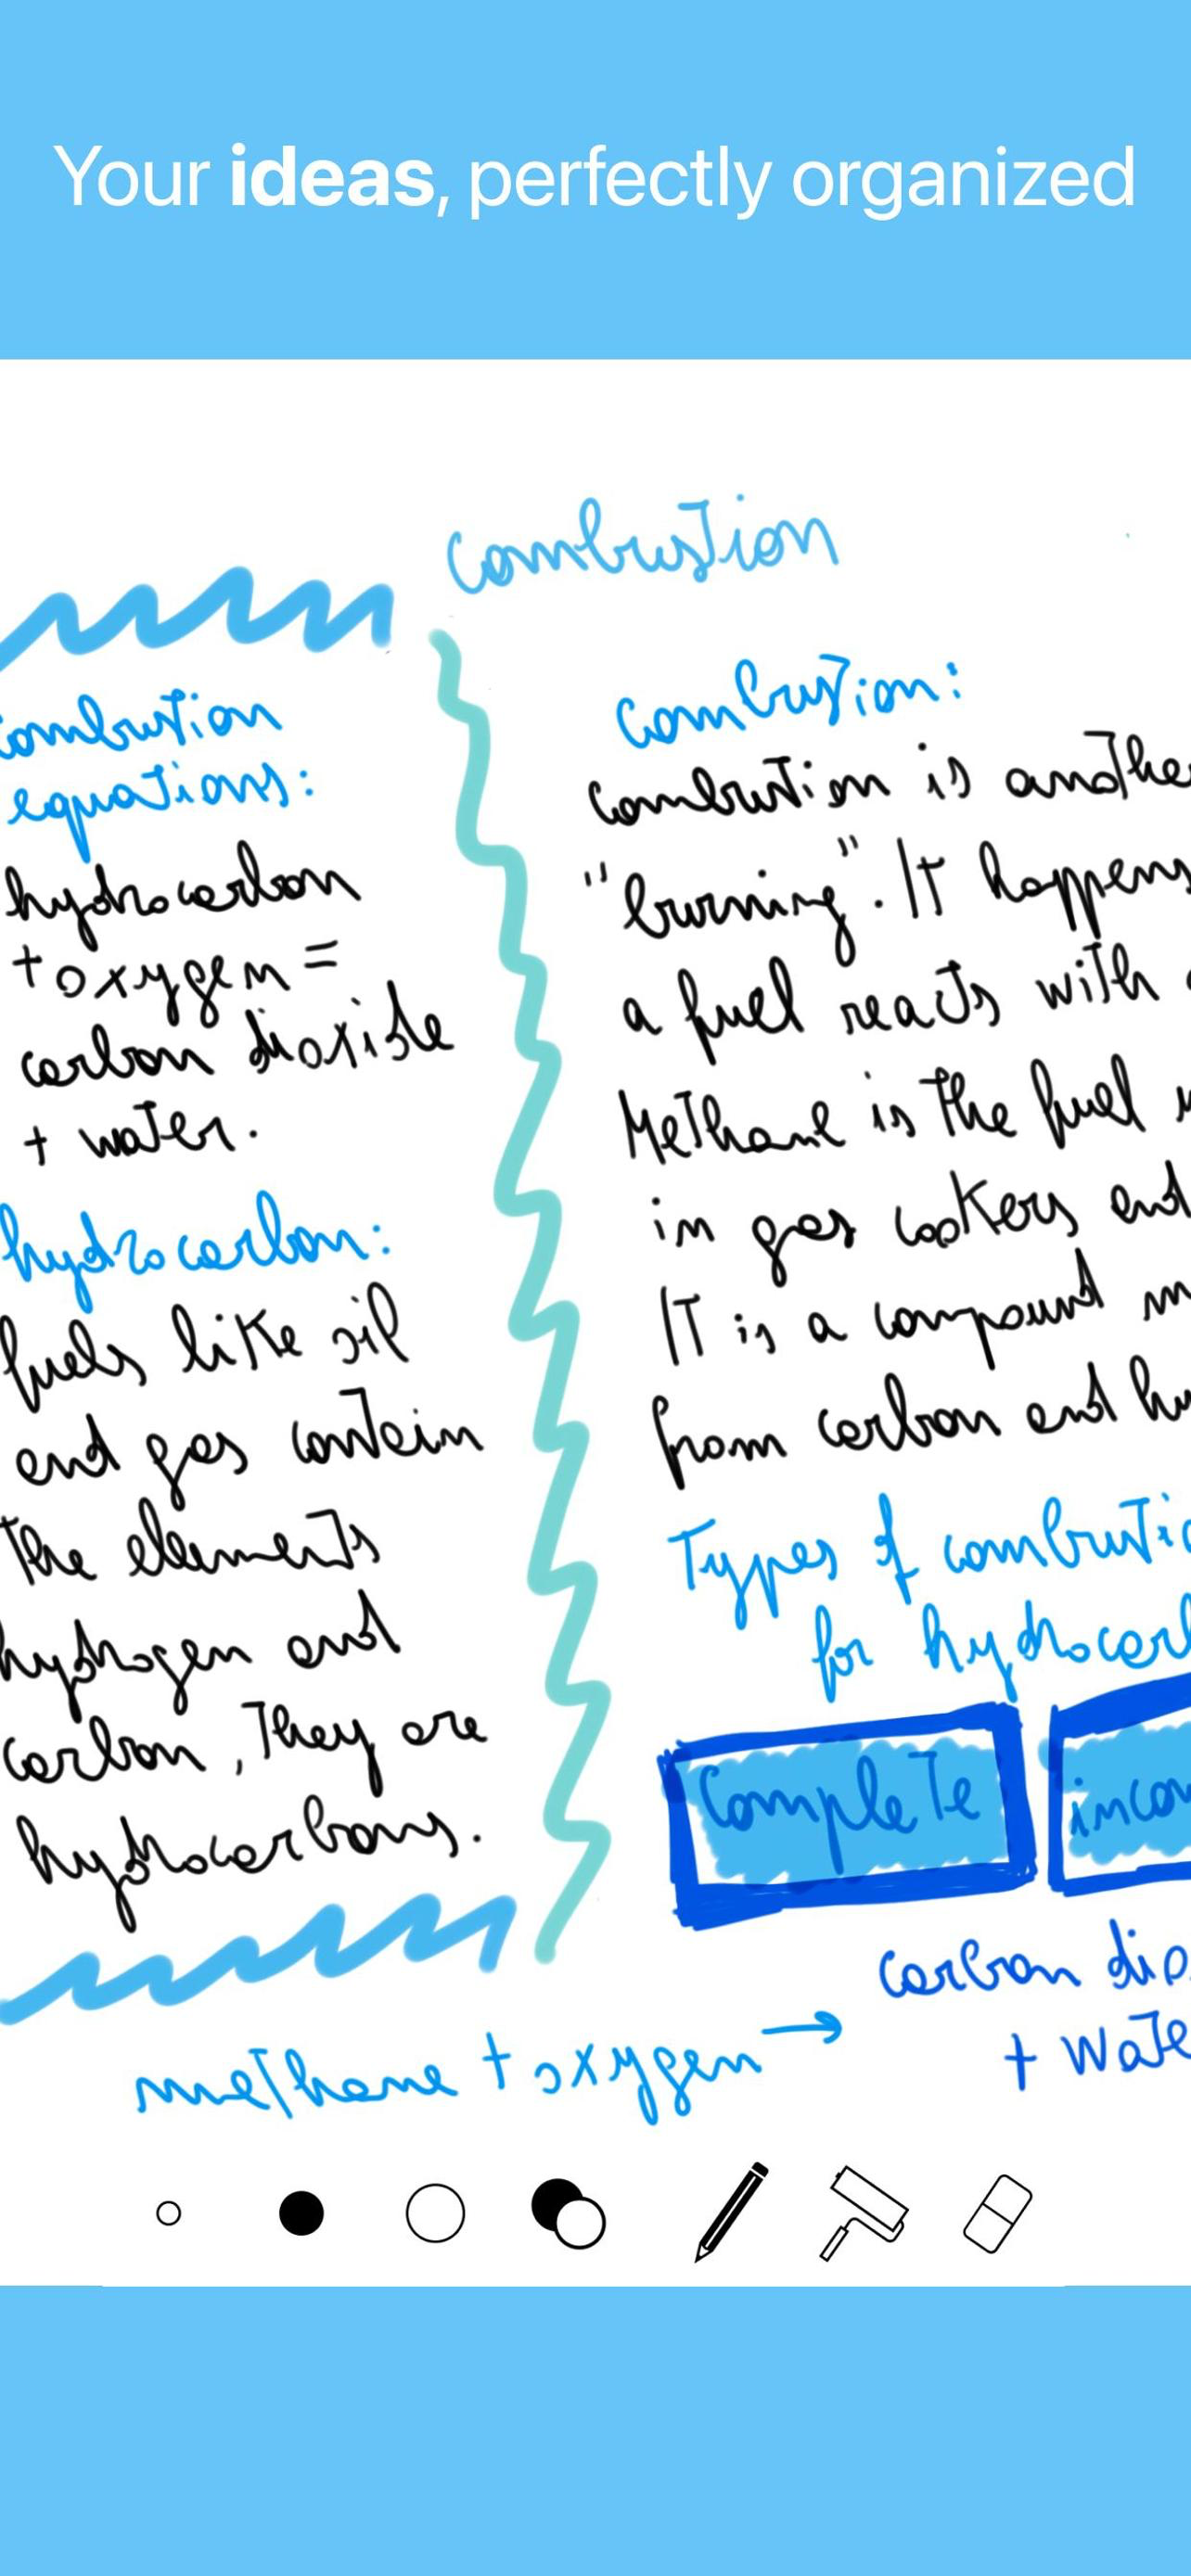 Your ideas, perfectly organized
combustion
combustion
equations:
hydrocarbon
+ oxygen =
carbon dioxide
+ water.
hydrocarbon:
fuels like oil
and gas contain
the elements
hydrogen and
carbon, They are
hydrocarbons.
combustion:
combustion is anothe
"burning". It happens
a fuel reacts with
Methane is the fuel
in gas cookers and
IT is a compound m
from carbon and hy
Types of combustio
for hydrocarb
complete
incom
methane + oxygen →
carbon dio
+ wate